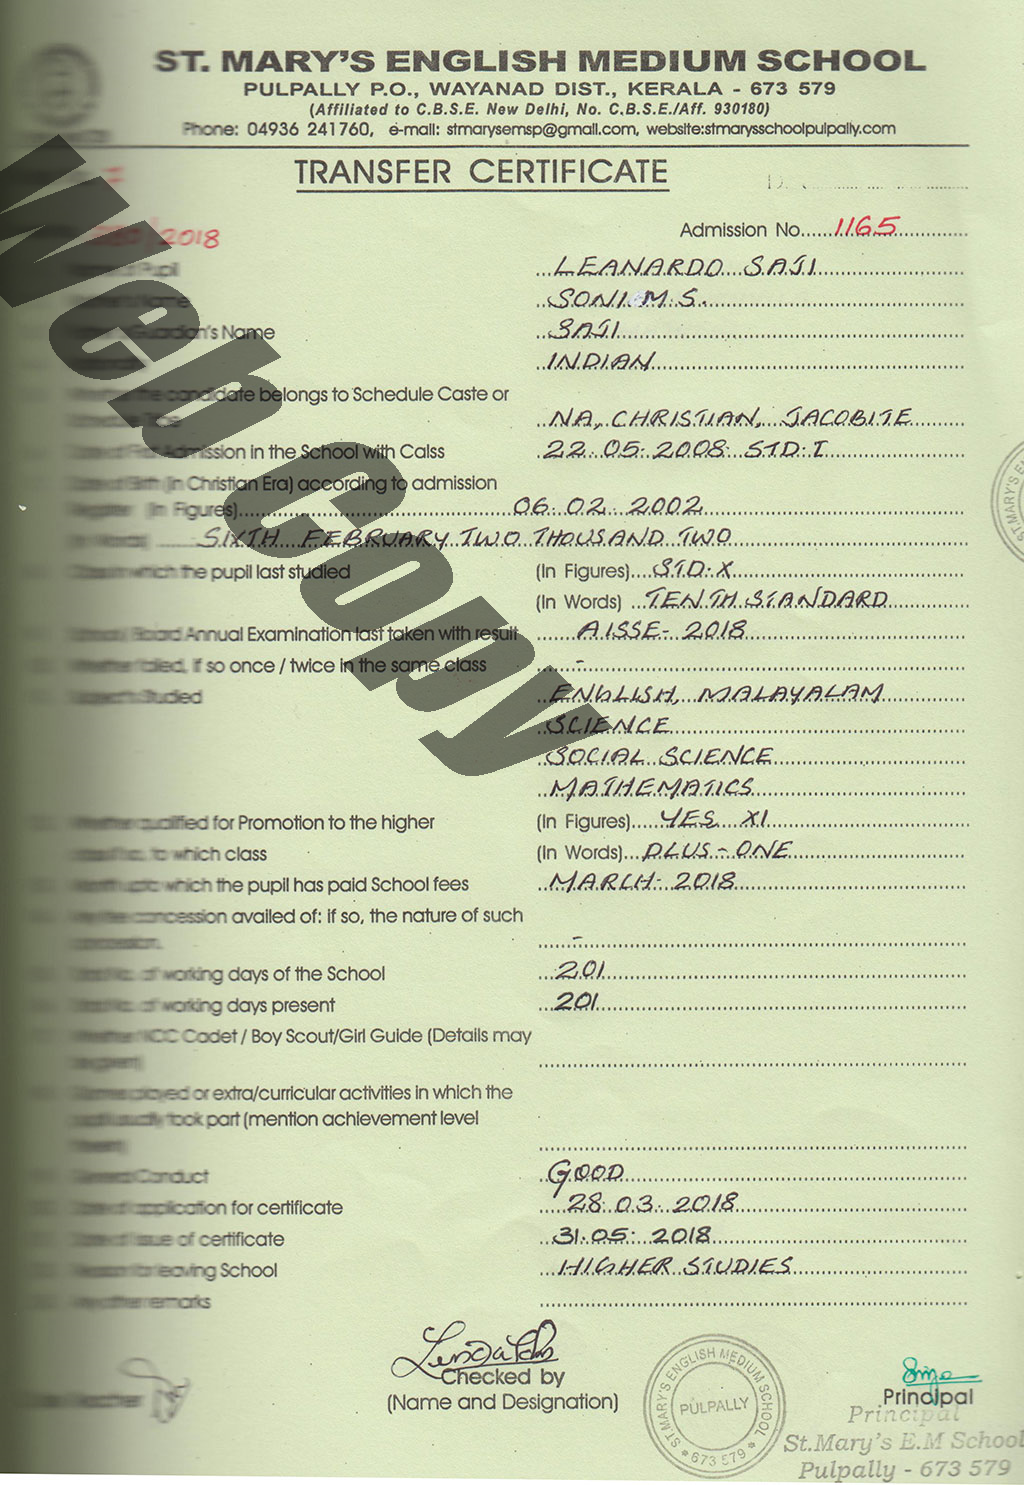 ST. MARY'S ENGLISH MEDIUM SCHOOL
PULPALLY P.O., WAYANAD DIST., KERALA - 673 579
(Affiliated to C.B.S.E. New Delhi, No. C.B.S.E./Aff. 930180)
Phone: 04936 241760, e-mail: stmarysemsp@gmail.com, website:stmarysschoolpulpally.com
TRANSFER CERTIFICATE
/2018 Admission No. 1165
Pupil LEANARDO SAJI
Name SONI M S.
Guardian's Name SAJI
INDIAN
the candidate belongs to Schedule Caste or
NA, CHRISTIAN, JACOBITE
Admission in the School with Calss 22.05.2008. STD.I
Birth (in Christian Era) according to admission
(In Figures) 06.02.2002
(In Words) SIXTH FEBRUARY TWO THOUSAND TWO
which the pupil last studied (In Figures) STD.X
(In Words) TENTH STANDARD
Board Annual Examination last taken with result AISSE- 2018
Whether failed, if so once / twice in the same class -
Studied ENGLISH, MALAYALAM
SCIENCE
SOCIAL SCIENCE
MATHEMATICS
Whether qualified for Promotion to the higher (In Figures) YES XI
to which class (In Words) PLUS-ONE
which the pupil has paid School fees MARCH- 2018
concession availed of: if so, the nature of such
concession. -
of working days of the School 201
of working days present 201
NCC Cadet / Boy Scout/Girl Guide (Details may
played or extra/curricular activities in which the
usually took part (mention achievement level
General Conduct GOOD
Date of application for certificate 28.03.2018
Date of issue of certificate 31.05.2018
Reason for leaving School HIGHER STUDIES
Any other remarks
Checked by
(Name and Designation)
Teacher
ST MARY'S ENGLISH MEDIUM SCHOOL
PULPALLY
673 579
Principal
Principal
St.Mary's E.M School
Pulpally - 673 579
ST MARY'S EN
Web Copy